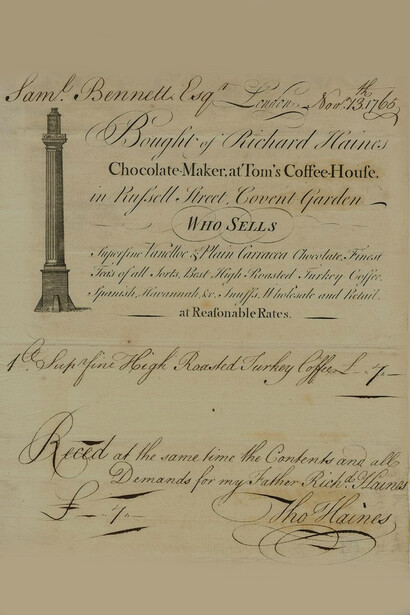 Saml. Bennett Esqr. London Novr. 13th. 1765
Bought of Richard Haines
Chocolate-Maker, at Tom's Coffee-House,
in Russell Street, Covent-Garden
WHO SELLS
Superfine Vanelloe & Plain Carracca Chocolate, Finest
Teas of all Sorts, Best High Roasted Turkey Coffee,
Spanish, Havannah, &c. Snuffs, Wholesale and Retail,
at Reasonable Rates.
Supr.fine High Roasted Turkey Coffee £ – 7 –
Reced at the same time the Contents and all
Demands for my Father Richd. Haines
£ – 7 –
Tho Haines